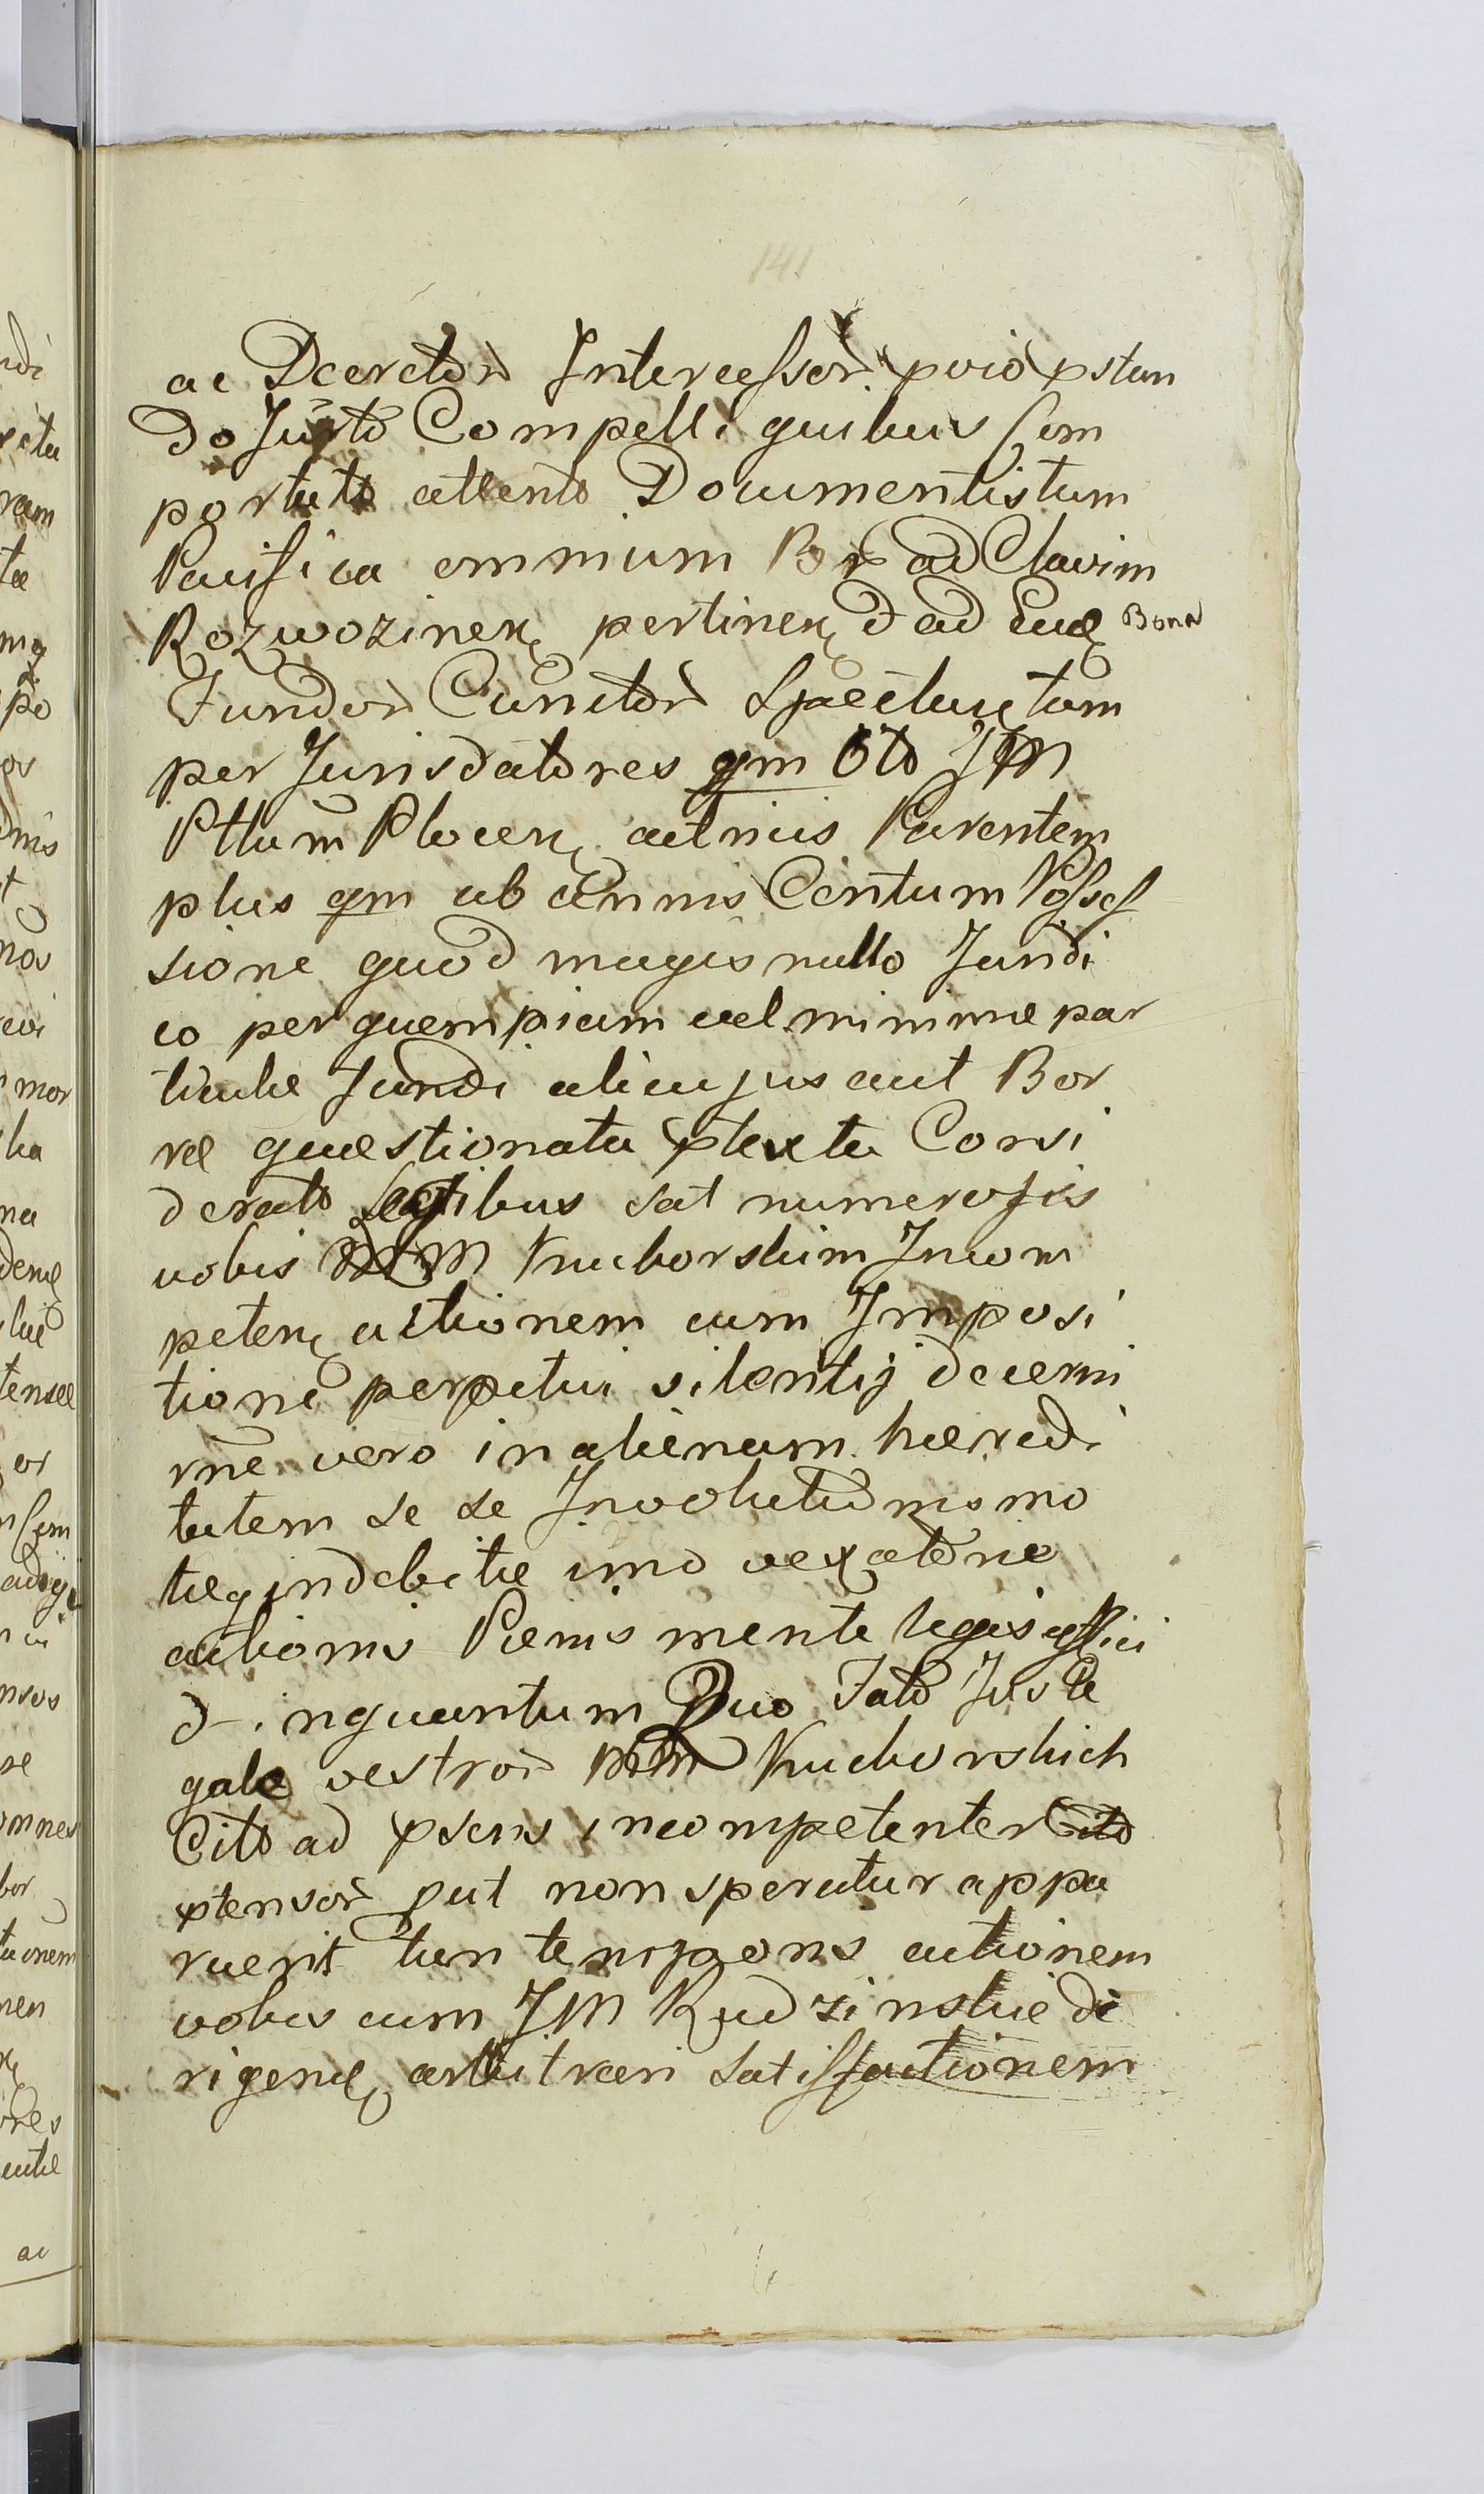 141
ac Decretor Intercessor. pvio pstan
do Jurto Compelli quibus Com
portatis attento Documentis tum
Pacifica omnium Br ad Clavim
Rozwozinen pertinen & ad Euq Bona
Fundor Cunctor Spectan tam
per Jurisdatores qm Oto JM
Pttum Plocen actnius Parentem
plus qm ab Annis Centum Posses
sione quod magis nullo Juridi
co per quempiam vel minimæ par
ticulæ fundi alicujus aut Bor
ræ quæstionata ptextu Consi
derato Legibus sat numerosis
vobis MM Kucborskim Incom
peten actionem cum Imposi
tione perpetui silentij decerni
rne vero in alienam hæredi
tatem se se Involutionis mo
tæq indebitæ imo vexatoriæ
actionis Pænis mente legis affici
& inquantum Quo Fato Jus le
gale vestror MM Kucborskich
Cito ad psens incompetenter
ptensor put non speratur appa
ruerit tun temporis actionem
vobis cum JM Rudzinskie di
rigen arbitrari satisfactionem